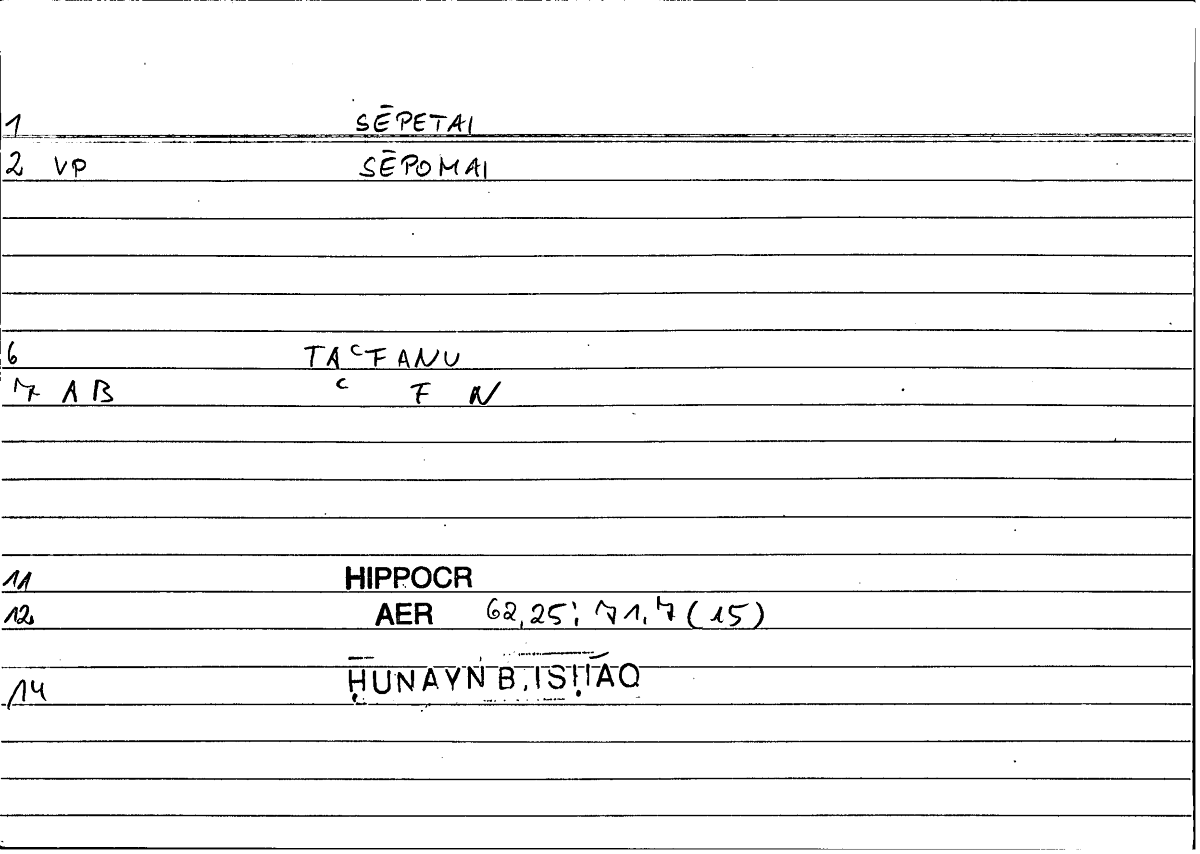 1 SĒPETAI
2 VP SĒPOMAI
6 TAᶜFANU
7 AB ᶜ F N
11 HIPPOCR
12 AER 62,25; 71,7 (15)
14 ḤUNAYN B. ISḤĀQ